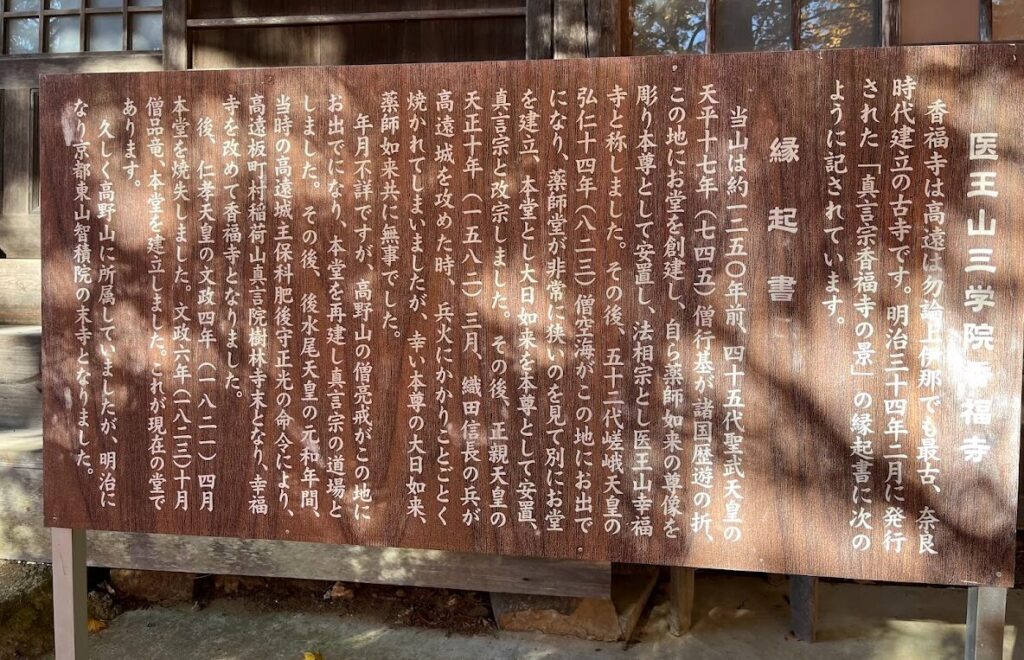 医王山三学院香福寺
香福寺は高遠は勿論上伊那でも最古、奈良
時代建立の古寺です。明治三十四年二月に発行
された「真言宗香福寺の景」の縁起書に次の
ように記されています。
縁起書
当山は約一二五〇年前、四十五代聖武天皇の
天平十七年（七四五）僧行基が諸国歴遊の折、
この地にお堂を創建し、自ら薬師如来の尊像を
彫り本尊として安置し、法相宗とし医王山幸福
寺と称しました。その後、五十二代嵯峨天皇の
弘仁十四年（八二三）僧空海がこの地にお出で
になり、薬師堂が非常に狭いのを見て別にお堂
を建立、本堂とし大日如来を本尊として安置、
真言宗と改宗しました。その後、正親天皇の
天正十年（一五八二）三月、織田信長の兵が
高遠城を攻めた時、兵火にかかりことごとく
焼かれてしまいましたが、幸い本尊の大日如来、
薬師如来共に無事でした。
年月不詳ですが、高野山の僧亮戒がこの地に
お出でになり、本堂を再建し真言宗の道場と
しました。その後、後水尾天皇の元和年間、
当時の高遠城主保科肥後守正光の命令により、
高遠板町村稲荷山真言院樹林寺末となり、幸福
寺を改めて香福寺となりました。
後、仁孝天皇の文政四年（一八二一）四月
本堂を焼失しました。文政六年（一八二三）十月
僧品竜、本堂を建立しました。これが現在の堂で
あります。
久しく高野山に所属していましたが、明治に
なり京都東山智積院の末寺となりました。